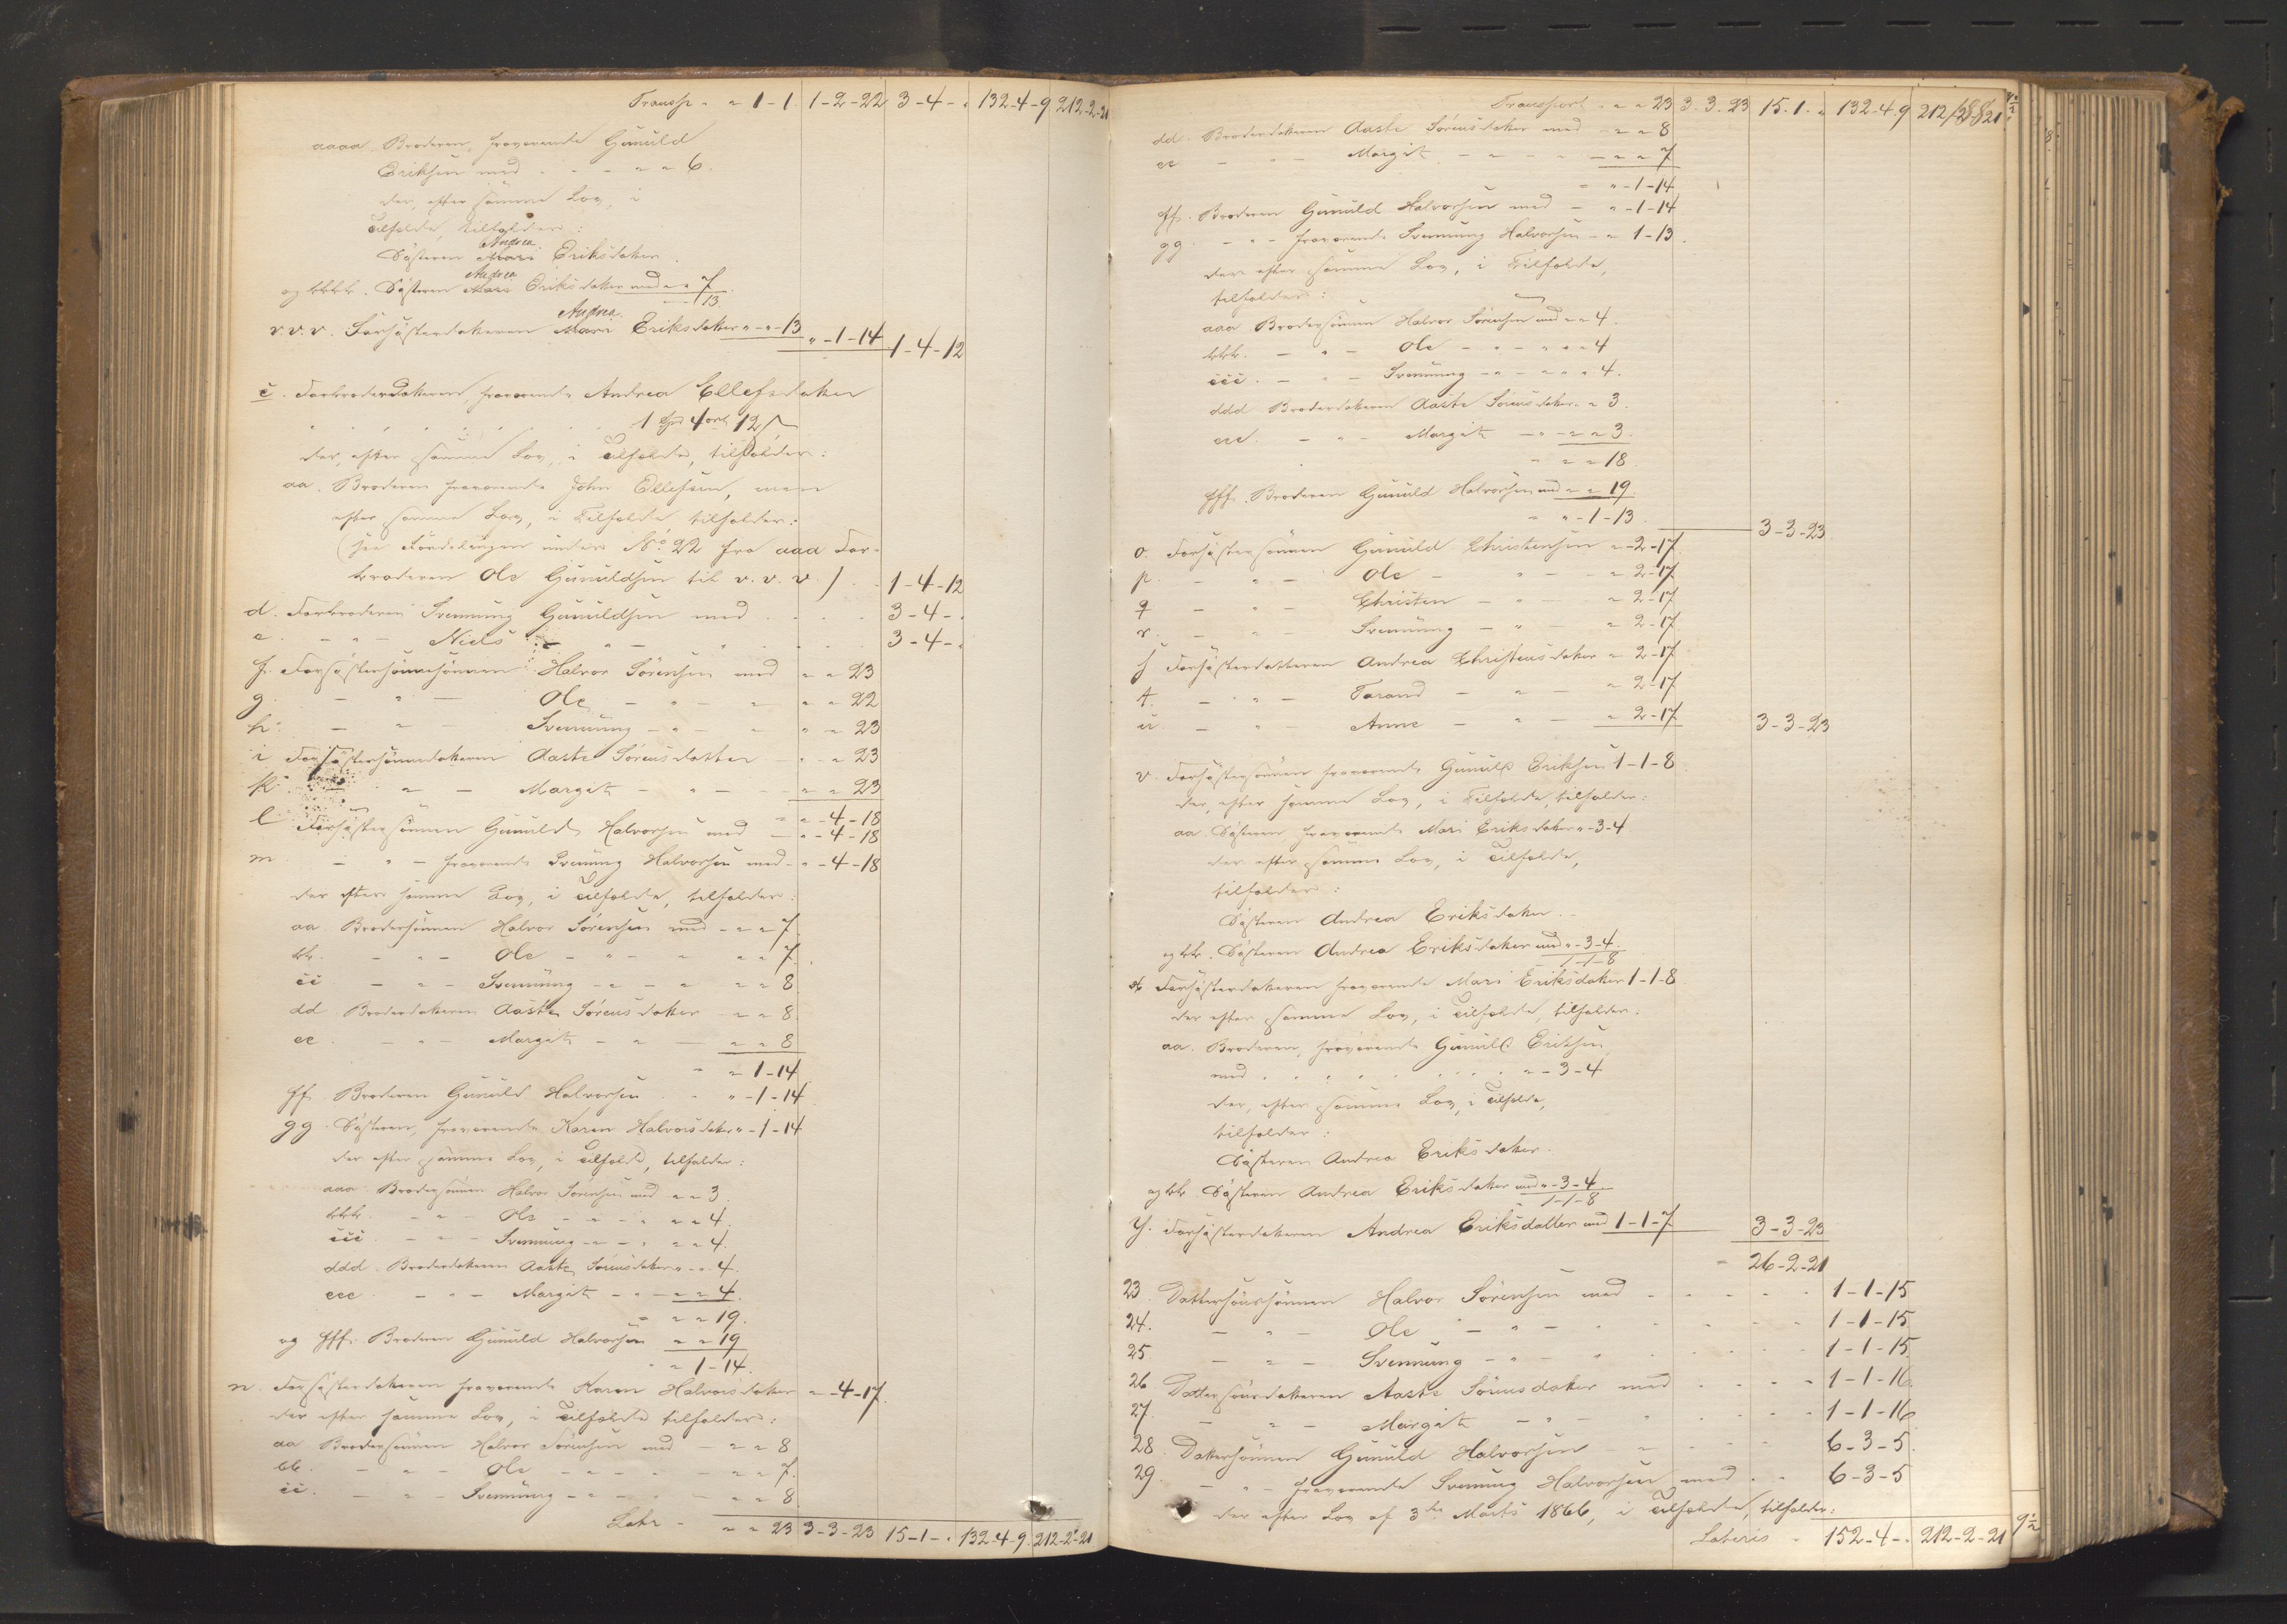 Transp. " " 1-1. 1-2-22 3-4-" 132-4-9 212-2-21
aaaa. Broderen, fraværende Gunuld
Eriksen med - - - " " 6.
der, efter samme Lov, i
Tilfælde, tilfalder:
Andrea
Søsteren Mari Eriksdatter.
Andrea
og bbbb. Søsteren Mari Eriksdatter med " " 7
" " 13.
Andrea.
v.v.v. Farsøsterdatteren Mari Eriksdatter " - " - 13 " -1-14 1-4-12
c. Farbroderdatteren, fraværende Andrea Ellefsdatter
1 Spd 4 ort 12 ß
der, efter samme Lov, i Tilfælde, tilfalder:
aa. Broderen fraværende John Ellefsen, men
efter samme Lov, i Tilfælde, tilfalder:
(see Fordelingen under No 22 fra aaa Far-
broderen Ole Gunuldsen til v.v.v.) . . 1-4-12
d. Farbroderen Svennung Gunuldsen med . . . . 3-4-"
e. - " - Niels - " - " . . . 3-4-"
f. Farsøstersønnesønnen Halvor Sørensen med " " 23
g. - " - Ole - " - " " " 22
h. - " - Svennung - " - " " " 23
i Farsøstersønnedatteren Aaste Sørensdatter " - " 23
k. - " - Margit - " - " " 23
" -4-18
l Farsøstersønnen Gunuld Halvorsen med " -4-18
m - " - fraværende Svennung Halvorsen med - " -4-18
der efter samme Lov, i Tilfælde, tilfalder:
aa. Brodersønnen Halvor Sørensen med - " " 7.
bb. - " - Ole - " - " " " 7.
cc - " - Svennung - " - " " " 8
dd Broderdatteren Aaste Sørensdatter - " " 8.
ee. - " - Margit - " - " " 8
" " 1-14
ff. Broderen Gunuld Halvorsen . " " -1-14
gg. Søsteren, fraværende Karen Halvorsdatter " -1-14
der efter samme Lov, i Tilfælde, tilfalder:
aaa Brodersønnen Halvor Sørensen med " " 3.
bbb. - " - Ole - " - " " " 4.
ccc - " - Svennung - " - " " " 4.
ddd. Broderdatteren Aaste Sørensdatter " - " 4.
eee. - " - Margit - " - " " 4.
" " " 19.
og fff. Broderen Gunuld Halvorsen " " 19
" " 1-14.
n. Farsøsterdatteren fraværende Karen Halvorsdatter " -4-17.
der efter samme Lov, i Tilfælde tilfalder:
aa Brodersønnen Halvor Sørensen med - " " 8
bb. - " - Ole - " - " - " " 7.
cc. - " - Svennung - " - " - " " 8.
Latr - " " 23 3-3-23 15-1-" 132-4-9. 212-2-21
Transport - " " 23 3-3-23 15-1-" 132-4-9 212-2-21
dd. Broderdatteren Aaste Sørensdatter med - " " 8
ee - " - Margit - " - " - " " 7
" " -1-14
ff. Broderen Gunuld Halvorsen med - " -1-14
gg. - " - fraværende Svennung Halvorsen - " 1-13.
der efter samme Lov, i Tilfælde,
tilfalder:
aaa Brodersønnen Halvor Sørensen med " " 4.
bbb. - " - Ole - " - " " " 4
ccc. - " - Svennung - " - " " " 4.
ddd Broderdatteren Aaste Sørensdatter " " 3.
eee. - " - Margit - " - " " 3.
" " " 18.
fff. Broderen Gunuld Halvorsen med " " 19.
" " -1-13. 3-3-23.
o. Farsøstersønnen Gunuld Christensen " -2-17.
p. - " - Ole - " - " 2-17
q - " - Christen - " - " 2-17
r. - " - Svennung - " - " 2-17
s Farsøsterdatteren Andrea Christensdatter " 2-17
t. - " - Tarand - " - " 2-17
u. - " - Anne - " - " 2-17 3-3-23
v. Farsøstersønnen fraværende Gunuld Eriksen 1-1-8
der, efter samme Lov, i Tilfælde, tilfalder:
aa. Søsteren, fraværende Mari Eriksdatter " -3-4
der efter samme Lov, i Tilfælde,
tilfalder:
Søsteren Andrea Eriksdatter.
og bb. Søsteren Andrea Eriksdatter med " -3-4.
1-1-8
x Farsøsterdatteren fraværende Mari Eriksdatter 1-1-8
der efter samme Lov, i Tilfælde, tilfalder:
aa. Broderen, fraværende Gunuld Eriksen
med . . . . . . . . " -3-4
der, efter samme Lov, i Tilfælde,
tilfalder:
Søsteren Andrea Eriksdatter.
og bb. Søsteren Andrea Eriksdatter med " -3-4
1-1-8
y. Farsøsterdatteren Andrea Eriksdatter med 1-1-7 3-3-23
26-2-21
23. Dattersønssønnen Halvor Sørensen med - - - - . 1-1-15
24. - " - Ole - " - " . . . 1-1-15.
25 - " - Svennung - " - " . . . 1-1-15.
26 Dattersønsdatteren Aaste Sørensdatter med . . . " 1-1-16.
27. - " - Margit - " - " . . . 1-1-16
28. Dattersønnen Gunuld Halvorsen - - . - 6-3-5.
29. - " - fraværende Svennung Halvorsen med . . 6-3-5
der efter Lov af 3die Marts 1866, i Tilfælde, tilfalder:
Lateris - 152-4-" 212-2-21